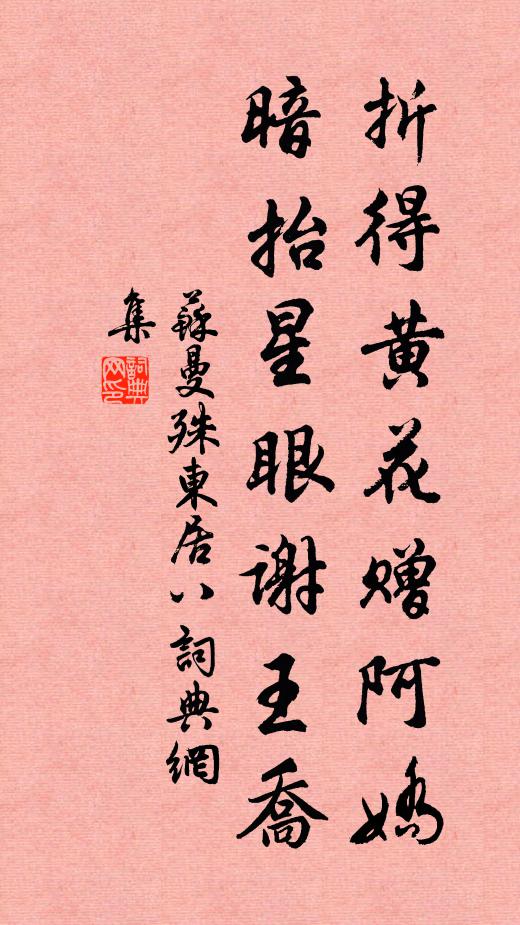 折得黄花赠阿嬌
暗抬星眼谢王喬
蘇曼殊東居八詞典網
集
詞典
网印